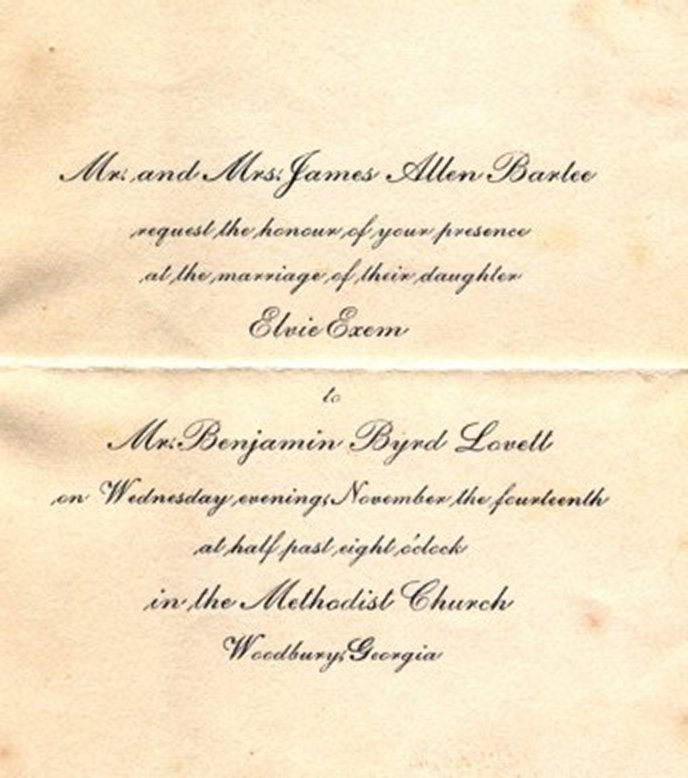 Mr. and Mrs. James Allen Barlee
request the honour of your presence
at the marriage of their daughter
Elvie Exem
to
Mr. Benjamin Byrd Lovett
on Wednesday evening, November the fourteenth
at half past eight o'clock
in the Methodist Church
Woodbury, Georgia